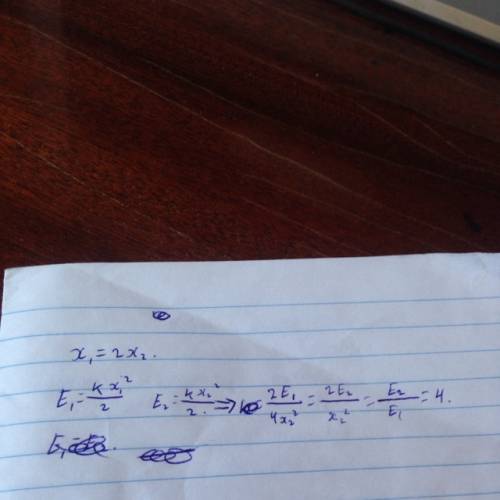 x₁ = 2x₂.
E₁ = kx₁²/2 E₂ = kx₂²/2. ⇒ 2E₁/4x₂² = 2E₂/x₂² = E₂/E₁ = 4.